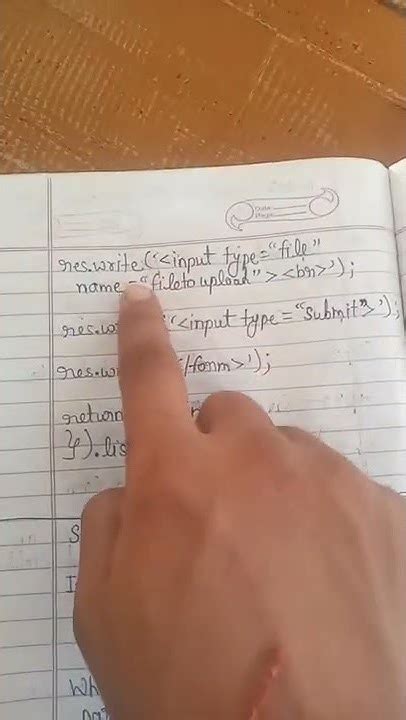 Date
Page
res.write('<input type="file"
name="filetoupload"><br>');
res.w '<input type="submit">');
res.w /form>');
return
}).lis
S
I
Wh